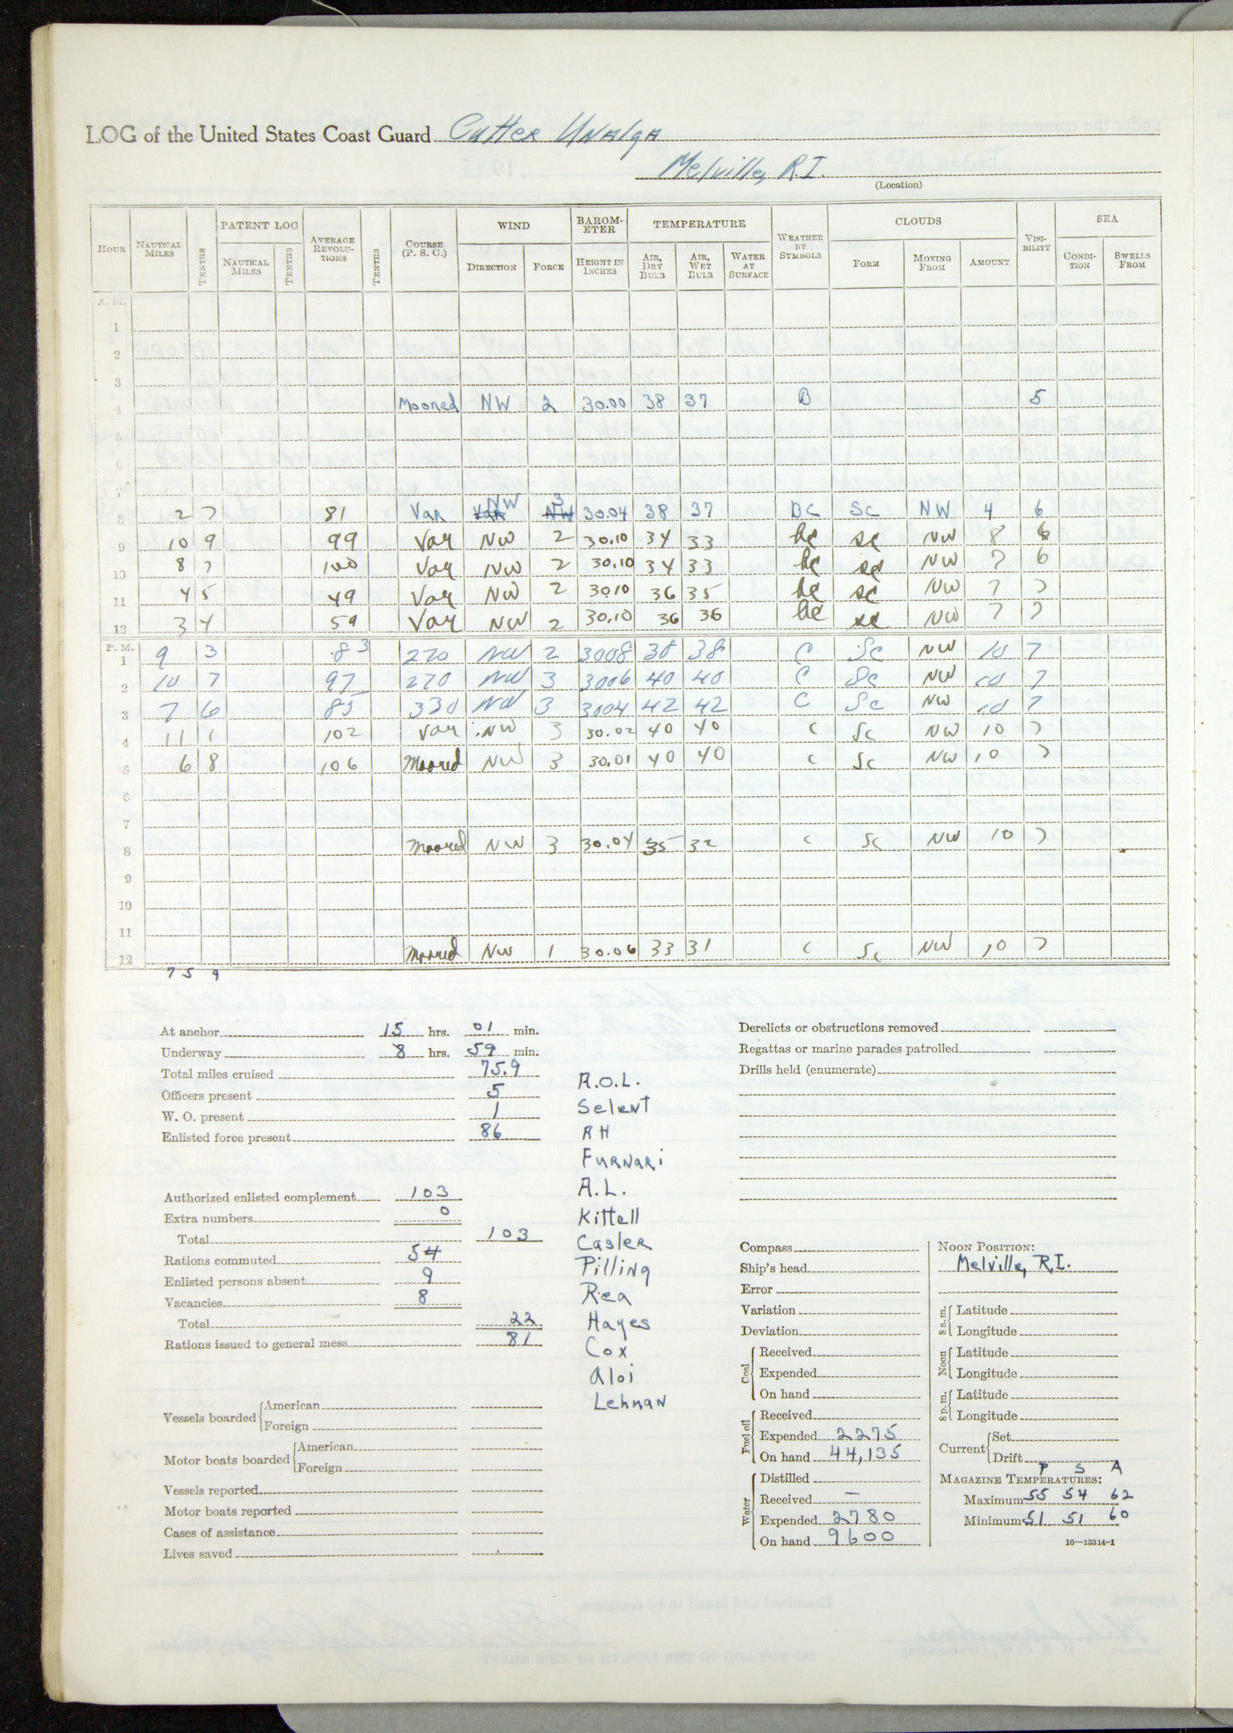 LOG of the United States Coast Guard Cutter Unalga
Melville, R.I.
(Location)
HOUR NAUTICAL MILES TENTHS PATENT LOG NAUTICAL MILES TENTHS AVERAGE REVOLUTIONS TENTHS COURSE (P. S. C.) WIND DIRECTION FORCE BAROMETER HEIGHT IN INCHES TEMPERATURE AIR, DRY BULB AIR, WET BULB WATER AT SURFACE WEATHER BY SYMBOLS CLOUDS FORM MOVING FROM AMOUNT VISIBILITY SEA CONDITION SWELLS FROM
A. M.
1
2
3
4 Moored NW 2 30.00 38 37 B 5
5
6
7
8 2 7 81 Var NW 3 30.04 38 37 BC Sc NW 4 6
9 10 9 99 Var NW 2 30.10 34 33 bc sc NW 8 6
10 8 7 100 Var NW 2 30.10 34 33 bc sc NW 7 6
11 4 5 49 Var NW 2 30.10 36 35 bc sc NW 7 7
12 3 4 59 Var NW 2 30.10 36 36 bc sc NW 7 7
P. M.
1 9 3 83 270 NW 2 3008 38 38 C Sc NW 10 7
2 10 7 97 270 NW 3 3006 40 40 C Sc NW 10 7
3 7 6 85 330 NW 3 3004 42 42 C Sc NW 10 7
4 11 1 102 Var NW 3 30.02 40 40 c Sc NW 10 7
5 6 8 106 Moored NW 3 30.01 40 40 c Sc NW 10 7
6
7
8 Moored NW 3 30.04 35 32 c Sc NW 10 7
9
10
11
12 Moored NW 1 30.06 33 31 c Sc NW 10 7
75 9
At anchor 15 hrs. 01 min.
Underway 8 hrs. 59 min.
Total miles cruised 75.9
Officers present 5
W. O. present 1
Enlisted force present 86
Authorized enlisted complement 103
Extra numbers 0
Total 103
Rations commuted 54
Enlisted persons absent 9
Vacancies 8
Total 22
Rations issued to general mess 81
Vessels boarded
American
Foreign
Motor boats boarded
American
Foreign
Vessels reported
Motor boats reported
Cases of assistance
Lives saved
A.O.L.
Selent
RH
Furnari
A.L.
Kittell
Casler
Pilling
Rea
Hayes
Cox
Aloi
Lehman
Derelicts or obstructions removed
Regattas or marine parades patrolled
Drills held (enumerate)
Compass
Ship's head
Error
Variation
Deviation
Coal
Received
Expended
On hand
Fuel oil
Received
Expended 2275
On hand 44,135
Water
Distilled
Received —
Expended 2780
On hand 9600
NOON POSITION:
Melville, R.I.
8 a.m.
Latitude
Longitude
Noon
Latitude
Longitude
8 p.m.
Latitude
Longitude
Current
Set
Drift
P S A
MAGAZINE TEMPERATURES:
Maximum 55 54 62
Minimum 51 51 60
16—13314-1